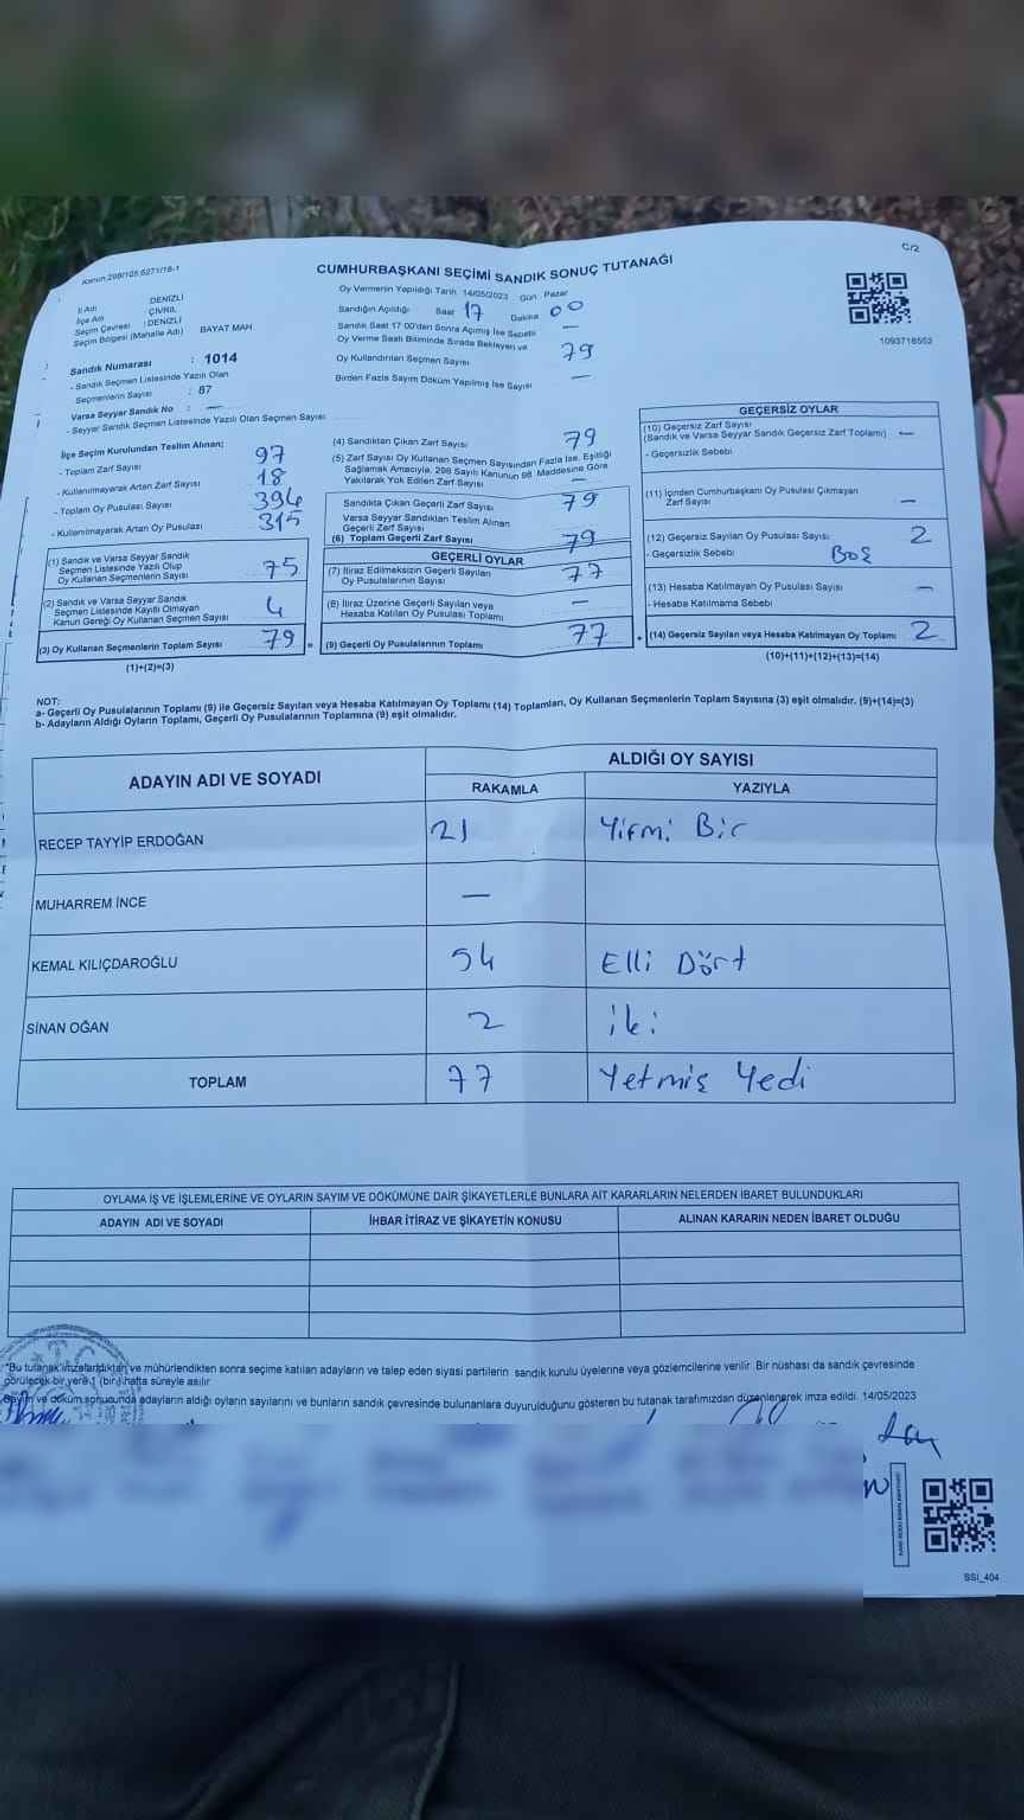 Kanun 298/105 6271/18-1
C/2
CUMHURBAŞKANI SEÇİMİ SANDIK SONUÇ TUTANAĞI
İl Adı : DENİZLİ
İlçe Adı : ÇİVRİL
Seçim Çevresi : DENİZLİ
Seçim Bölgesi (Mahalle Adı) BAYAT MAH
Sandık Numarası : 1014
- Sandık Seçmen Listesinde Yazılı Olan
Seçmenlerin Sayısı : 87
Varsa Seyyar Sandık No : —
- Seyyar Sandık Seçmen Listesinde Yazılı Olan Seçmen Sayısı
Oy Vermenin Yapıldığı Tarih 14/05/2023 Gün Pazar
Sandığın Açıldığı Saat 17 Dakika 00
Sandık Saat 17 00'den Sonra Açılmış İse Sebebi —
Oy Verme Saati Bitiminde Sırada Bekleyen ve
Oy Kullandırılan Seçmen Sayısı 79
Birden Fazla Sayım Döküm Yapılmış İse Sayısı —
1093718552
İlçe Seçim Kurulundan Teslim Alınan;
- Toplam Zarf Sayısı 97
- Kullanılmayarak Artan Zarf Sayısı 18
- Toplam Oy Pusulası Sayısı 394
- Kullanılmayarak Artan Oy Pusulası 315
(1) Sandık ve Varsa Seyyar Sandık
Seçmen Listesinde Yazılı Olup
Oy Kullanan Seçmenlerin Sayısı 75
(2) Sandık ve Varsa Seyyar Sandık
Seçmen Listesinde Kayıtlı Olmayan
Kanun Gereği Oy Kullanan Seçmen Sayısı 4
(3) Oy Kullanan Seçmenlerin Toplam Sayısı 79 =
(1)+(2)=(3)
(4) Sandıktan Çıkan Zarf Sayısı 79
(5) Zarf Sayısı Oy Kullanan Seçmen Sayısından Fazla İse, Eşitliği
Sağlamak Amacıyla, 298 Sayılı Kanunun 98. Maddesine Göre
Yakılarak Yok Edilen Zarf Sayısı —
Sandıkta Çıkan Geçerli Zarf Sayısı 79
Varsa Seyyar Sandıktan Teslim Alınan
Geçerli Zarf Sayısı
(6) Toplam Geçerli Zarf Sayısı 79
GEÇERLİ OYLAR
(7) İtiraz Edilmeksizin Geçerli Sayılan
Oy Pusulalarının Sayısı 77
(8) İtiraz Üzerine Geçerli Sayılan veya
Hesaba Katılan Oy Pusulası Toplamı —
(9) Geçerli Oy Pusulalarının Toplamı 77 +
GEÇERSİZ OYLAR
(10) Geçersiz Zarf Sayısı
(Sandık ve Varsa Seyyar Sandık Geçersiz Zarf Toplamı) —
- Geçersizlik Sebebi
(11) İçinden Cumhurbaşkanı Oy Pusulası Çıkmayan
Zarf Sayısı —
(12) Geçersiz Sayılan Oy Pusulası Sayısı 2
- Geçersizlik Sebebi Boş
(13) Hesaba Katılmayan Oy Pusulası Sayısı —
- Hesaba Katılmama Sebebi
(14) Geçersiz Sayılan veya Hesaba Katılmayan Oy Toplamı 2
(10)+(11)+(12)+(13)=(14)
NOT:
a- Geçerli Oy Pusulalarının Toplamı (9) ile Geçersiz Sayılan veya Hesaba Katılmayan Oy Toplamı (14) Toplamları, Oy Kullanan Seçmenlerin Toplam Sayısına (3) eşit olmalıdır. (9)+(14)=(3)
b- Adayların Aldığı Oyların Toplamı, Geçerli Oy Pusulalarının Toplamına (9) eşit olmalıdır.
ADAYIN ADI VE SOYADI
ALDIĞI OY SAYISI
RAKAMLA YAZIYLA
RECEP TAYYİP ERDOĞAN 21 Yirmi Bir
MUHARREM İNCE —
KEMAL KILIÇDAROĞLU 54 Elli Dört
SİNAN OĞAN 2 iki
TOPLAM 77 Yetmiş Yedi
OYLAMA İŞ VE İŞLEMLERİNE VE OYLARIN SAYIM VE DÖKÜMÜNE DAİR ŞİKAYETLERLE BUNLARA AİT KARARLARIN NELERDEN İBARET BULUNDUKLARI
ADAYIN ADI VE SOYADI İHBAR İTİRAZ VE ŞİKAYETİN KONUSU ALINAN KARARIN NEDEN İBARET OLDUĞU
*Bu tutanak imzalandıktan ve mühürlendikten sonra seçime katılan adayların ve talep eden siyasi partilerin sandık kurulu üyelerine veya gözlemcilerine verilir. Bir nüshası da sandık çevresinde
görülecek bir yere 1 (bir) hafta süreyle asılır
Sayım ve döküm sonucunda adayların aldığı oyların sayılarını ve bunların sandık çevresinde bulunanlara duyurulduğunu gösteren bu tutanak tarafımızdan düzenlenerek imza edildi. 14/05/2023
SSI_404